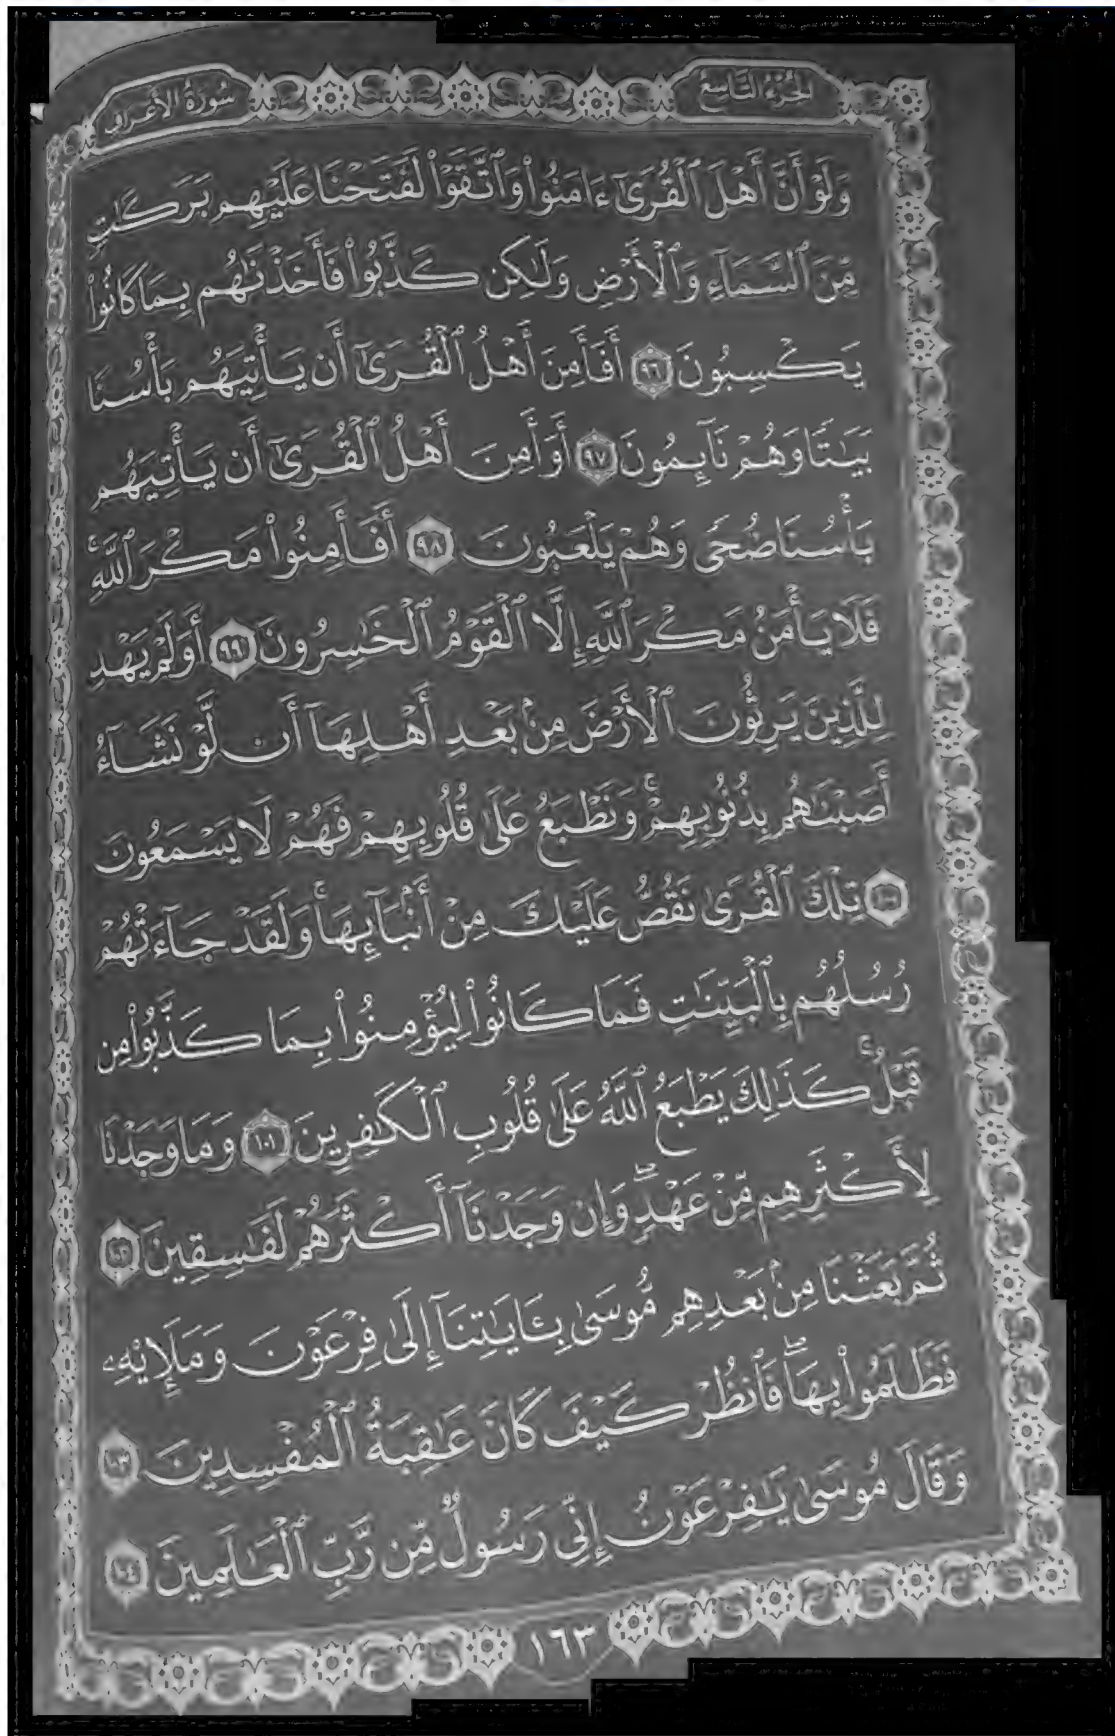 الجزء التاسع
سورة الأعراف
وَلَوْ أَنَّ أَهْلَ ٱلْقُرَىٰٓ ءَامَنُوا۟ وَٱتَّقَوْا۟ لَفَتَحْنَا عَلَيْهِم بَرَكَـٰتٍ
مِّنَ ٱلسَّمَآءِ وَٱلْأَرْضِ وَلَـٰكِن كَذَّبُوا۟ فَأَخَذْنَـٰهُم بِمَا كَانُوا۟
يَكْسِبُونَ ٩٦ أَفَأَمِنَ أَهْلُ ٱلْقُرَىٰٓ أَن يَأْتِيَهُم بَأْسُنَا
بَيَـٰتًا وَهُمْ نَآئِمُونَ ٩٧ أَوَأَمِنَ أَهْلُ ٱلْقُرَىٰٓ أَن يَأْتِيَهُم
بَأْسُنَا ضُحًى وَهُمْ يَلْعَبُونَ ٩٨ أَفَأَمِنُوا۟ مَكْرَ ٱللَّهِ ۚ
فَلَا يَأْمَنُ مَكْرَ ٱللَّهِ إِلَّا ٱلْقَوْمُ ٱلْخَـٰسِرُونَ ٩٩ أَوَلَمْ يَهْدِ
لِلَّذِينَ يَرِثُونَ ٱلْأَرْضَ مِنۢ بَعْدِ أَهْلِهَآ أَن لَّوْ نَشَآءُ
أَصَبْنَـٰهُم بِذُنُوبِهِمْ ۚ وَنَطْبَعُ عَلَىٰ قُلُوبِهِمْ فَهُمْ لَا يَسْمَعُونَ
١٠٠ تِلْكَ ٱلْقُرَىٰ نَقُصُّ عَلَيْكَ مِنْ أَنۢبَآئِهَا ۚ وَلَقَدْ جَآءَتْهُمْ
رُسُلُهُم بِٱلْبَيِّنَـٰتِ فَمَا كَانُوا۟ لِيُؤْمِنُوا۟ بِمَا كَذَّبُوا۟ مِن
قَبْلُ ۚ كَذَٰلِكَ يَطْبَعُ ٱللَّهُ عَلَىٰ قُلُوبِ ٱلْكَـٰفِرِينَ ١٠١ وَمَا وَجَدْنَا
لِأَكْثَرِهِم مِّنْ عَهْدٍ ۖ وَإِن وَجَدْنَآ أَكْثَرَهُمْ لَفَـٰسِقِينَ ١٠٢
ثُمَّ بَعَثْنَا مِنۢ بَعْدِهِم مُّوسَىٰ بِـَٔايَـٰتِنَآ إِلَىٰ فِرْعَوْنَ وَمَلَإِي۟هِۦ
فَظَلَمُوا۟ بِهَا ۖ فَٱنظُرْ كَيْفَ كَانَ عَـٰقِبَةُ ٱلْمُفْسِدِينَ ١٠٣
وَقَالَ مُوسَىٰ يَـٰفِرْعَوْنُ إِنِّى رَسُولٌ مِّن رَّبِّ ٱلْعَـٰلَمِينَ ١٠٤
١٦٣